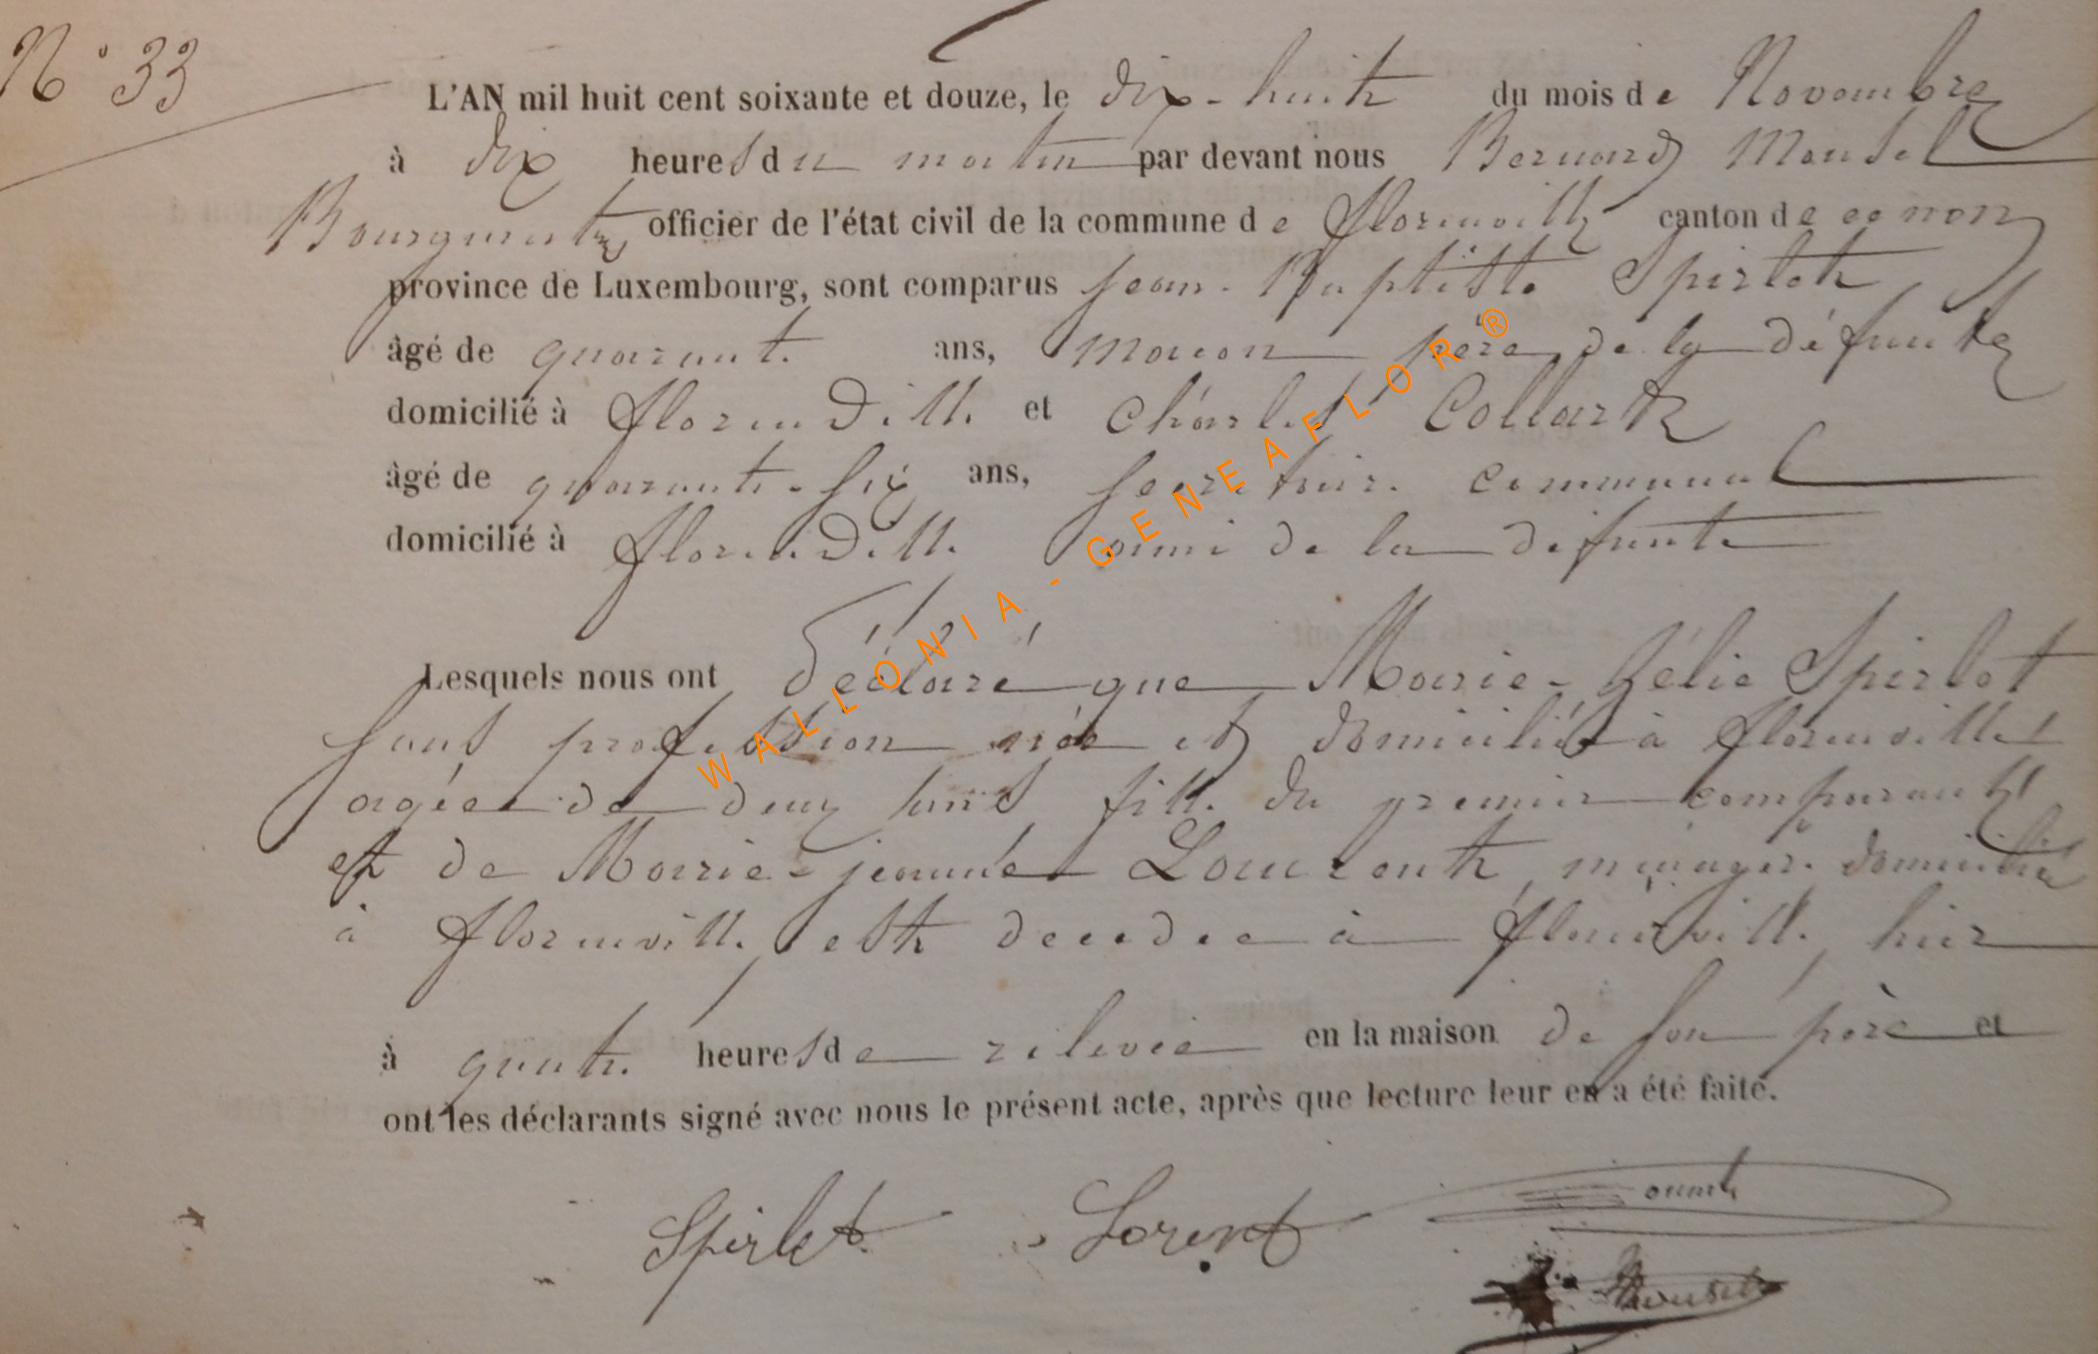 N° 33
L'AN mil huit cent soixante et douze, le dix-huit du mois de Novembre
à dix heures du matin par devant nous Bernard Mausel
Bourgmestre, officier de l'état civil de la commune de florenville canton de ce nom
province de Luxembourg, sont comparus Jean-Baptiste Spirlet
âgé de quarante ans, macon père de la défunte
domicilié à florenville et Charles Collart
âgé de quarante-six ans, secretaire communal
domicilié à florenville ami de la défunte
Lesquels nous ont déclaré que Marie-Zélie Spirlet
sans profession née et domiciliée à florenville
agée de deux ans fille du premier comparant
et de Marie-jeanne Laurent, menagere domiciliée
à florenville est decedee à florenville, hier
à quatre heures de relevée en la maison de son père et
ont les déclarants signé avec nous le présent acte, après que lecture leur en a été faite.
Spirlet Lorent
WALLONIA - GENEAFLOR®